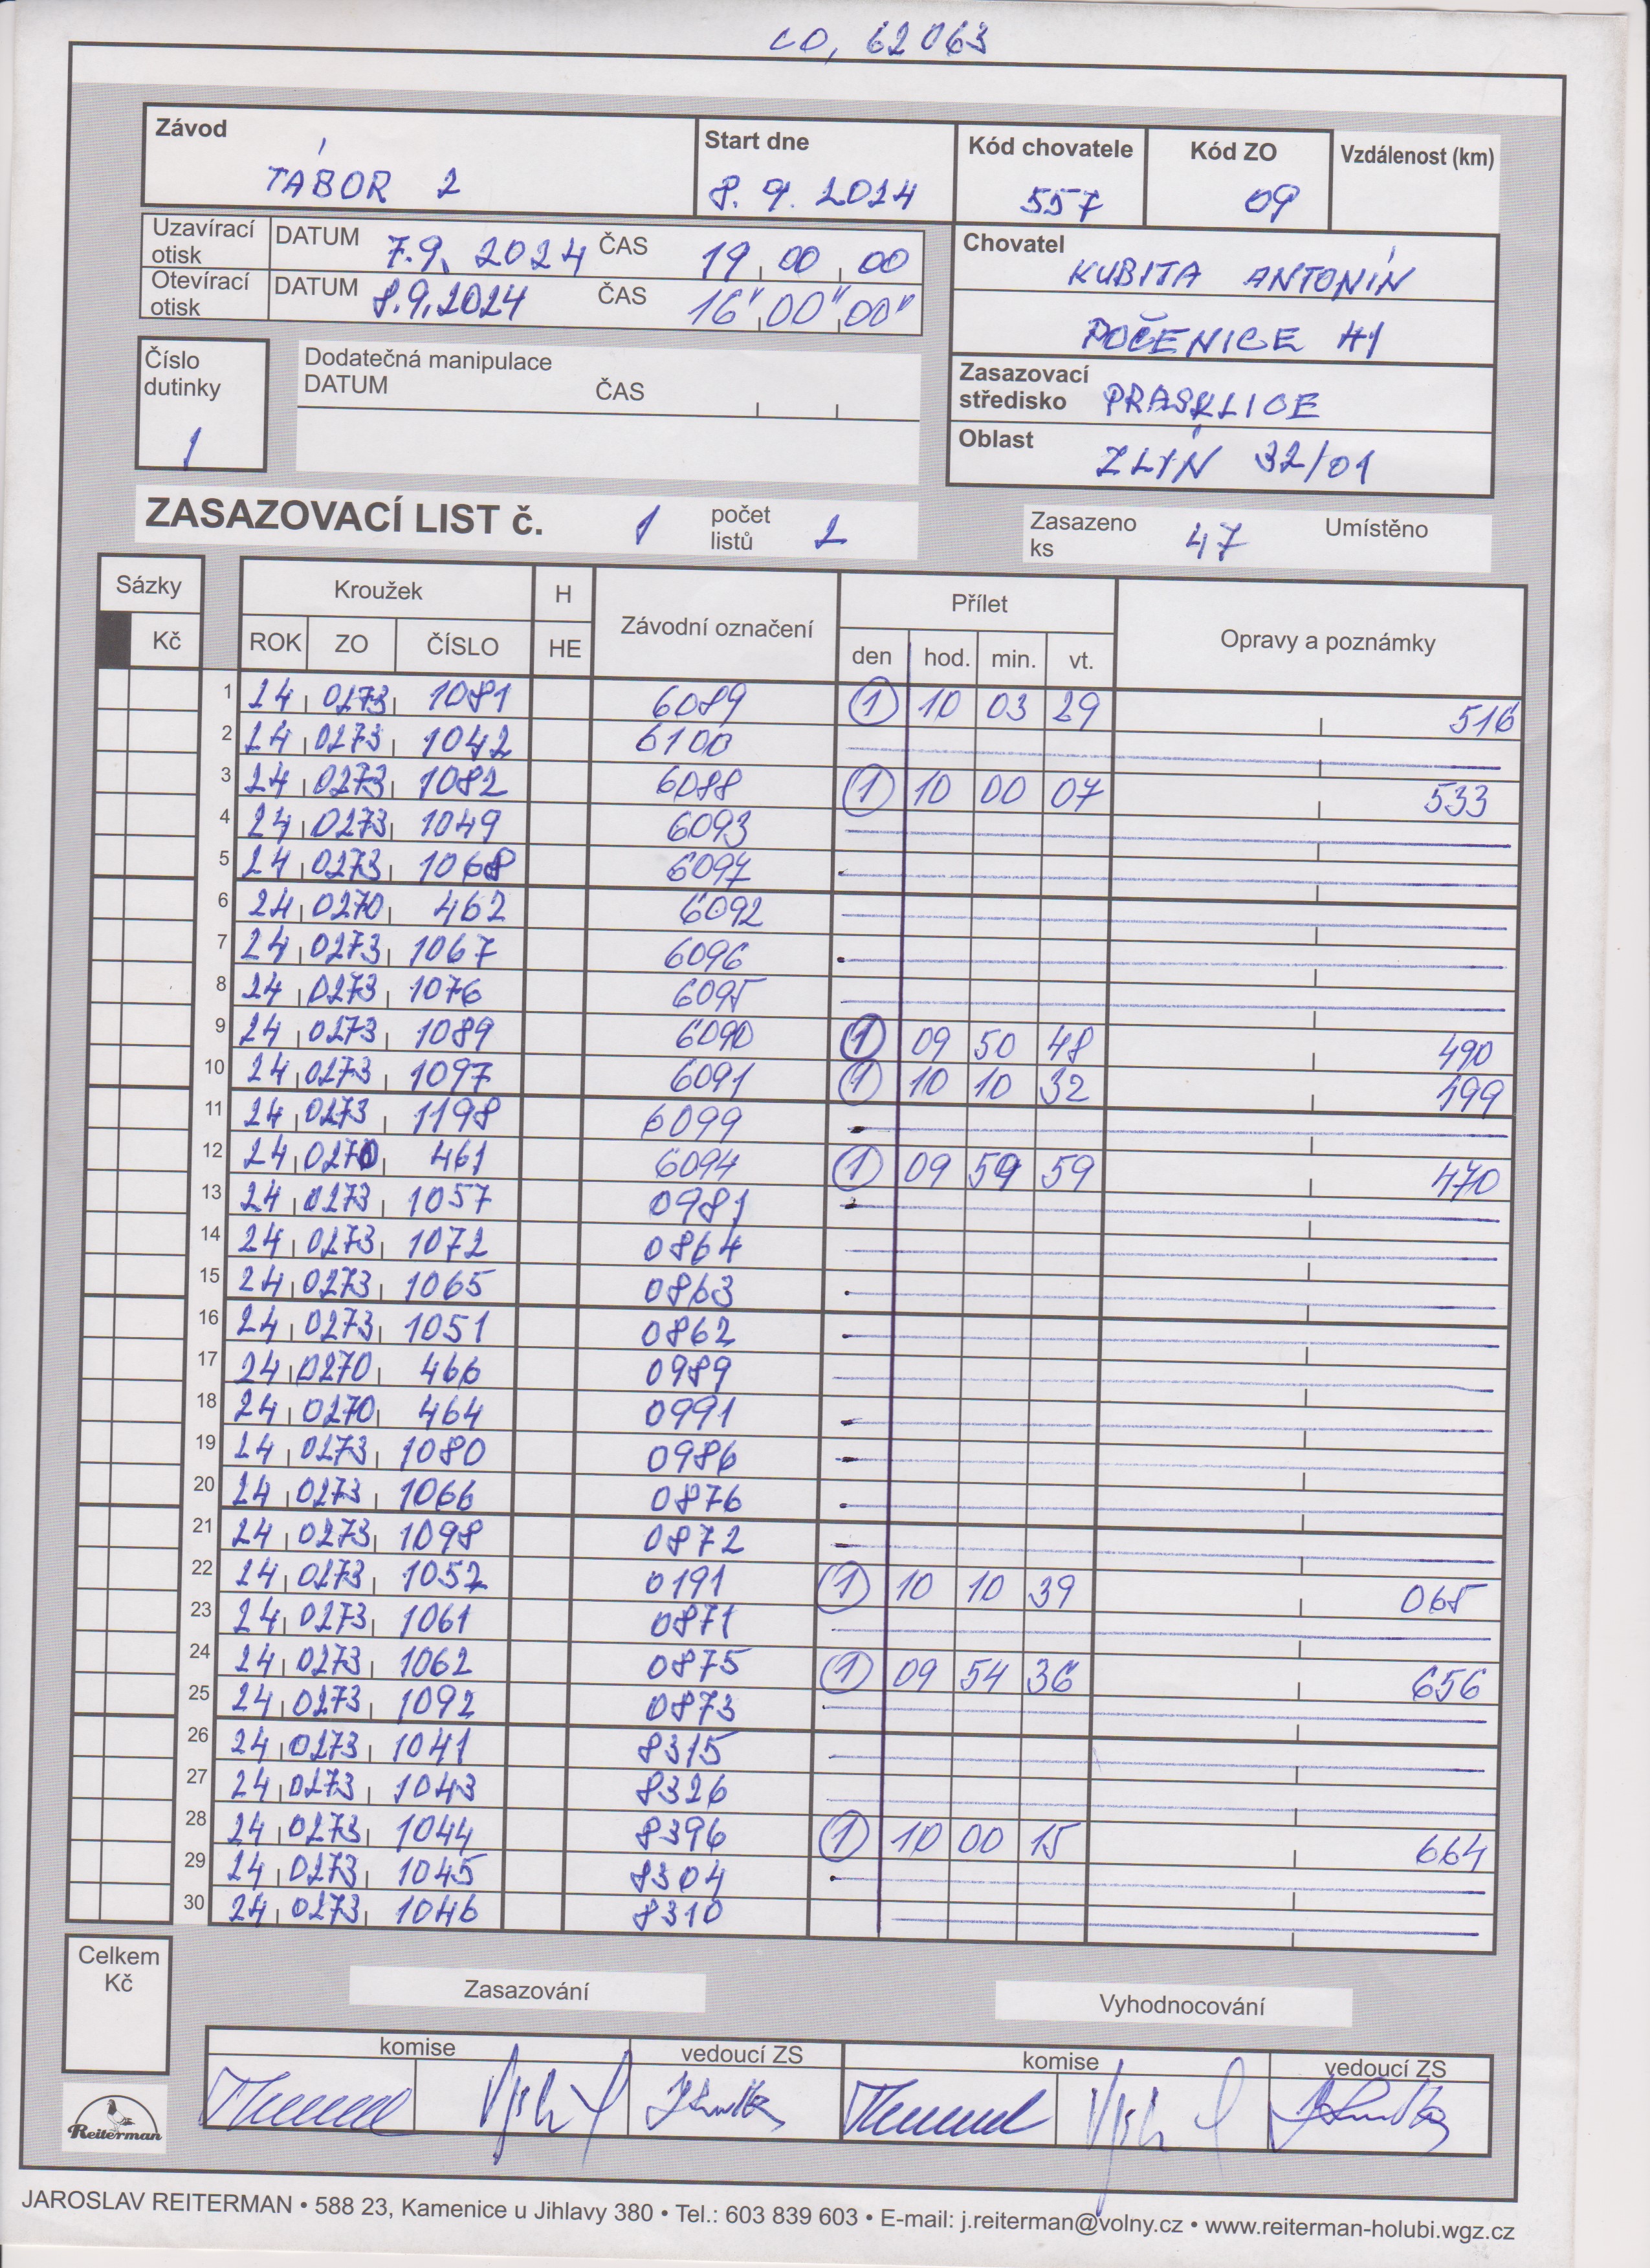 CO, 62063
Závod Start dne Kód chovatele Kód ZO Vzdálenost (km)
TÁBOR 2 8. 9. 2024 557 09
Uzavírací otisk DATUM 7.9. 2024 ČAS 19 00 00
Otevírací otisk DATUM 8.9.2024 ČAS 16" 00" 00"
Chovatel KUBITA ANTONÍN
POČENICE 41
Číslo dutinky 1
Dodatečná manipulace
DATUM ČAS
Zasazovací středisko PRASKLICE
Oblast ZLÍN 32/01
ZASAZOVACÍ LIST č. 1 počet listů 2 Zasazeno ks 47 Umístěno
Sázky Kroužek H Závodní označení Přílet Opravy a poznámky
Kč ROK ZO ČÍSLO HE den hod. min. vt.
1 24 0273 1081 6089 1 10 03 29 516
2 24 0273 1042 6100
3 24 0273 1082 6088 1 10 00 07 533
4 24 0273 1049 6093
5 24 0273 1068 6097
6 24 0270 462 6092
7 24 0273 1067 6096
8 24 0273 1076 6095
9 24 0273 1089 6090 1 09 50 48 490
10 24 0273 1097 6091 1 10 10 32 499
11 24 0273 1198 6099
12 24 0270 461 6094 1 09 59 59 470
13 24 0273 1057 0981
14 24 0273 1072 0864
15 24 0273 1065 0863
16 24 0273 1051 0862
17 24 0270 466 0989
18 24 0270 464 0991
19 24 0273 1080 0986
20 24 0273 1066 0876
21 24 0273 1098 0872
22 24 0273 1052 0191 1 10 10 39 065
23 24 0273 1061 0871
24 24 0273 1062 0875 1 09 54 36 656
25 24 0273 1092 0873
26 24 0273 1041 8315
27 24 0273 1043 8326
28 24 0273 1044 8396 1 10 00 15 664
29 24 0273 1045 8304
30 24 0273 1046 8310
Celkem Kč
Zasazování Vyhodnocování
komise vedoucí ZS komise vedoucí ZS
Reiterman
JAROSLAV REITERMAN • 588 23, Kamenice u Jihlavy 380 • Tel.: 603 839 603 • E-mail: j.reiterman@volny.cz • www.reiterman-holubi.wgz.cz